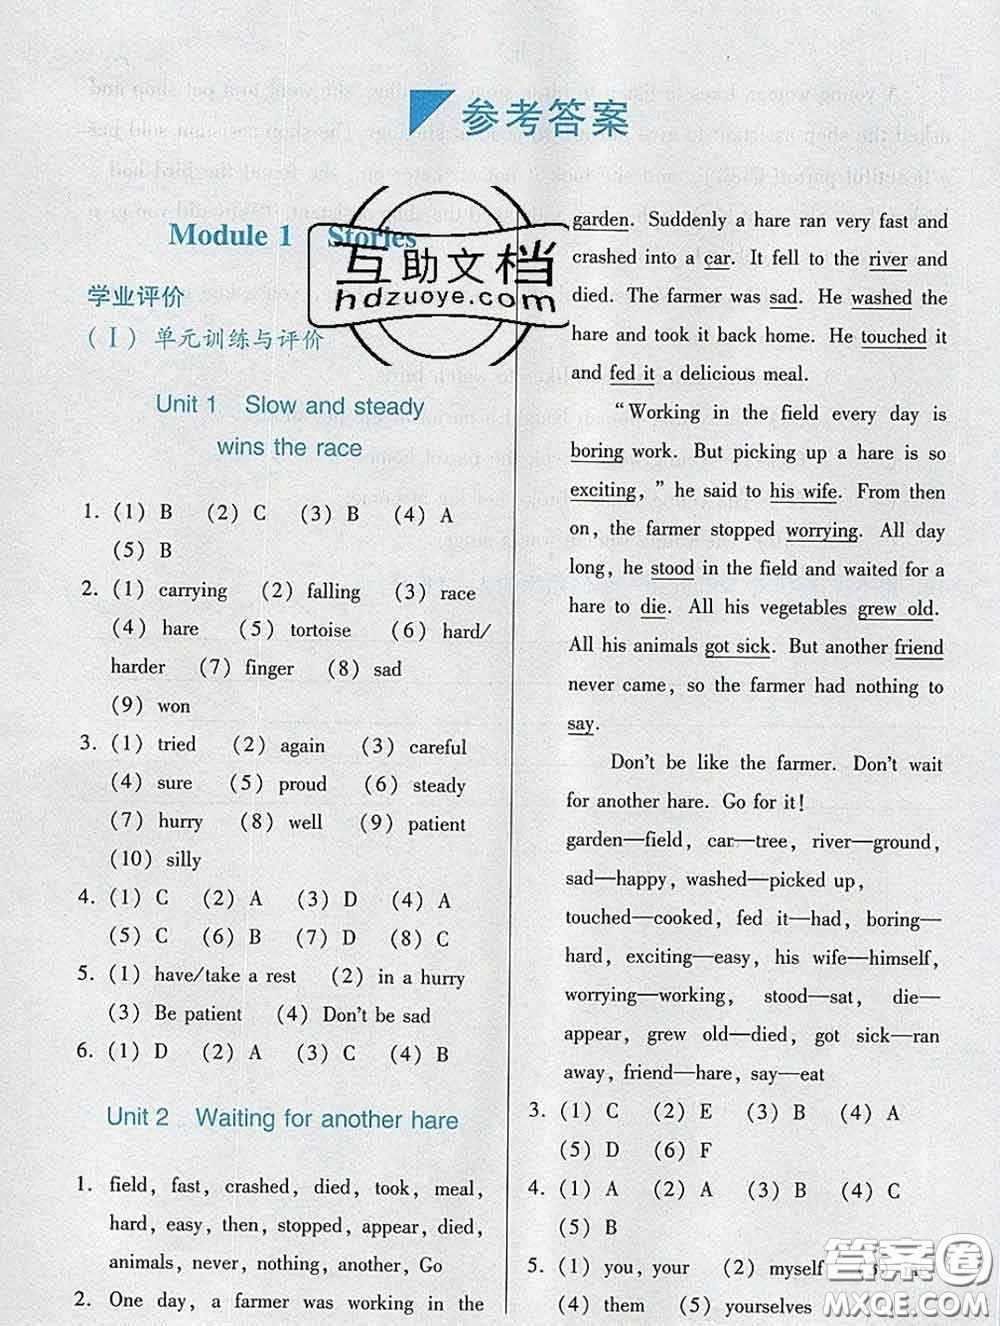 参考答案
Module 1 Stories
学业评价
(Ⅰ) 单元训练与评价
Unit 1 Slow and steady
wins the race
1. (1) B (2) C (3) B (4) A
(5) B
2. (1) carrying (2) falling (3) race
(4) hare (5) tortoise (6) hard/
harder (7) finger (8) sad
(9) won
3. (1) tried (2) again (3) careful
(4) sure (5) proud (6) steady
(7) hurry (8) well (9) patient
(10) silly
4. (1) C (2) A (3) D (4) A
(5) C (6) B (7) D (8) C
5. (1) have/take a rest (2) in a hurry
(3) Be patient (4) Don't be sad
6. (1) D (2) A (3) C (4) B
Unit 2 Waiting for another hare
1. field, fast, crashed, died, took, meal,
hard, easy, then, stopped, appear, died,
animals, never, nothing, another, Go
2. One day, a farmer was working in the
garden. Suddenly a hare ran very fast and
crashed into a car. It fell to the river and
died. The farmer was sad. He washed the
hare and took it back home. He touched it
and fed it a delicious meal.
"Working in the field every day is
boring work. But picking up a hare is so
exciting," he said to his wife. From then
on, the farmer stopped worrying. All day
long, he stood in the field and waited for a
hare to die. All his vegetables grew old.
All his animals got sick. But another friend
never came, so the farmer had nothing to
say.
Don't be like the farmer. Don't wait
for another hare. Go for it!
garden—field, car—tree, river—ground,
sad—happy, washed—picked up,
touched—cooked, fed it—had, boring—
hard, exciting—easy, his wife—himself,
worrying—working, stood—sat, die—
appear, grew old—died, got sick—ran
away, friend—hare, say—eat
3. (1) C (2) E (3) B (4) A
(5) D (6) F
4. (1) A (2) A (3) B (4) C
(5) B
5. (1) you, your (2) myself
(4) them (5) yourselves
互助文档
hdzuoye.com
答案圈
MXQE.COM